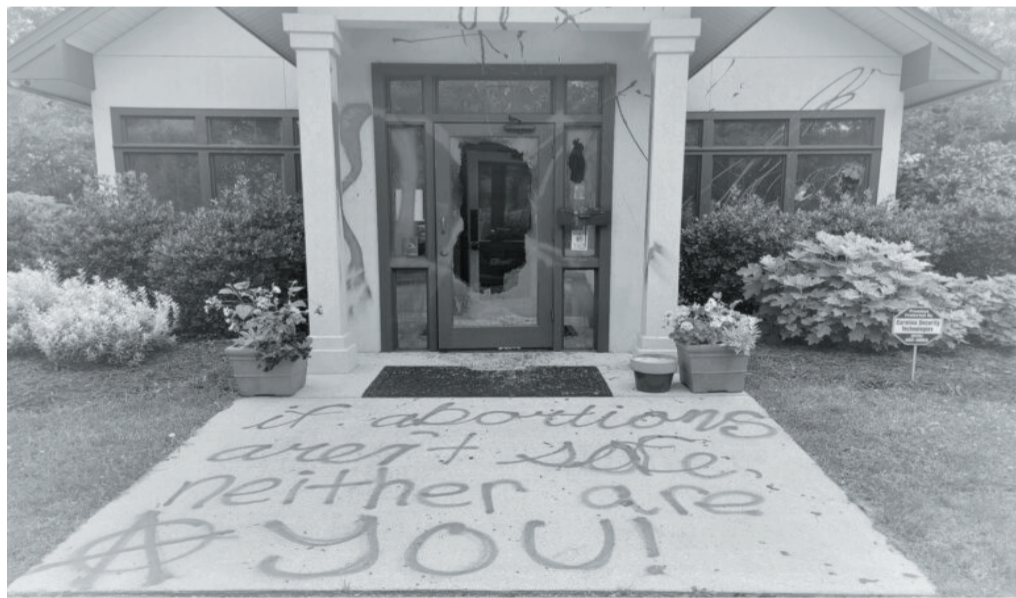 if abortions
aren't safe,
neither are
YOU!
Carolina Security
Technologies